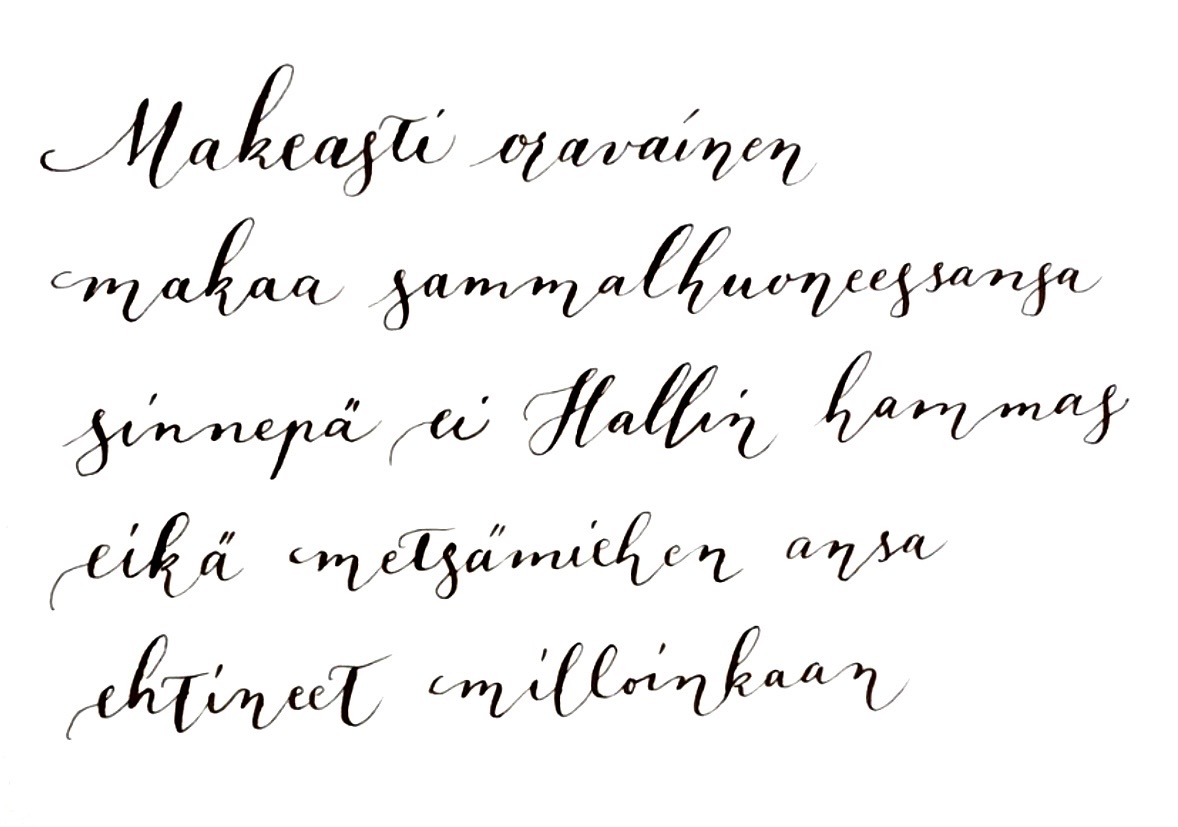 Makeasti oravainen
makaa sammalhuoneessansa
sinnepä ei Hallin hammas
eikä metsämiehen ansa
ehtineet milloinkaan